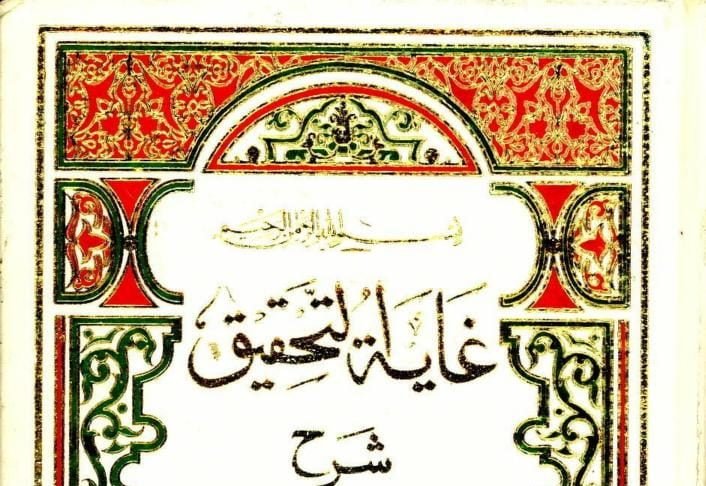 بسم الله الرحمن الرحيم
غَايَة التَّحقِيق
شَرح